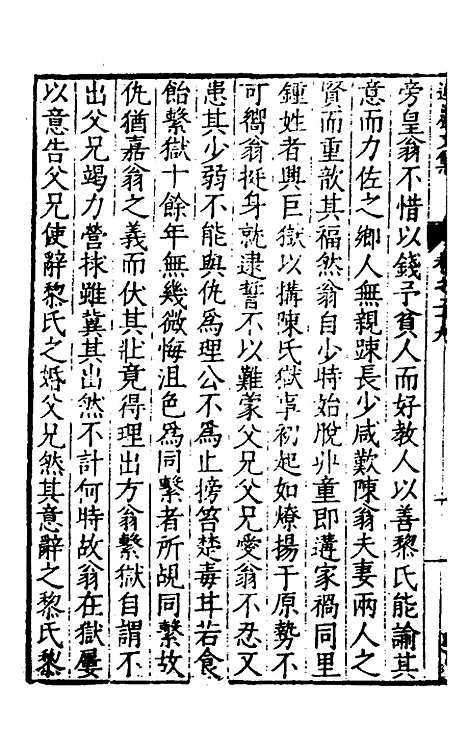 旁皇翁不惜以錢予貧人而好教人以善黎氏能諭其
意而力佐之鄉人無親踈長少咸歎陳翁夫妻兩人之
賢而重歆其福然翁自少時始脫丱童即遘家禍同里
鍾姓者興巨獄以搆陳氏獄事初起如燎揚于原勢不
可嚮翁挺身就逮誓不以難蒙父兄父兄愛翁不忍又
患其少弱不能與仇爲理公不爲止搒笞楚毒耳若食
飴繫獄十餘年無幾微悔沮色爲同繫者所覘同繫故
仇猶嘉翁之義而伏其壯竟得理出方翁繫獄自謂不
出父兄竭力營捄雖冀其出然不計何時故翁在獄屢
以意告父兄使辭黎氏之婚父兄然其意辭之黎氏黎